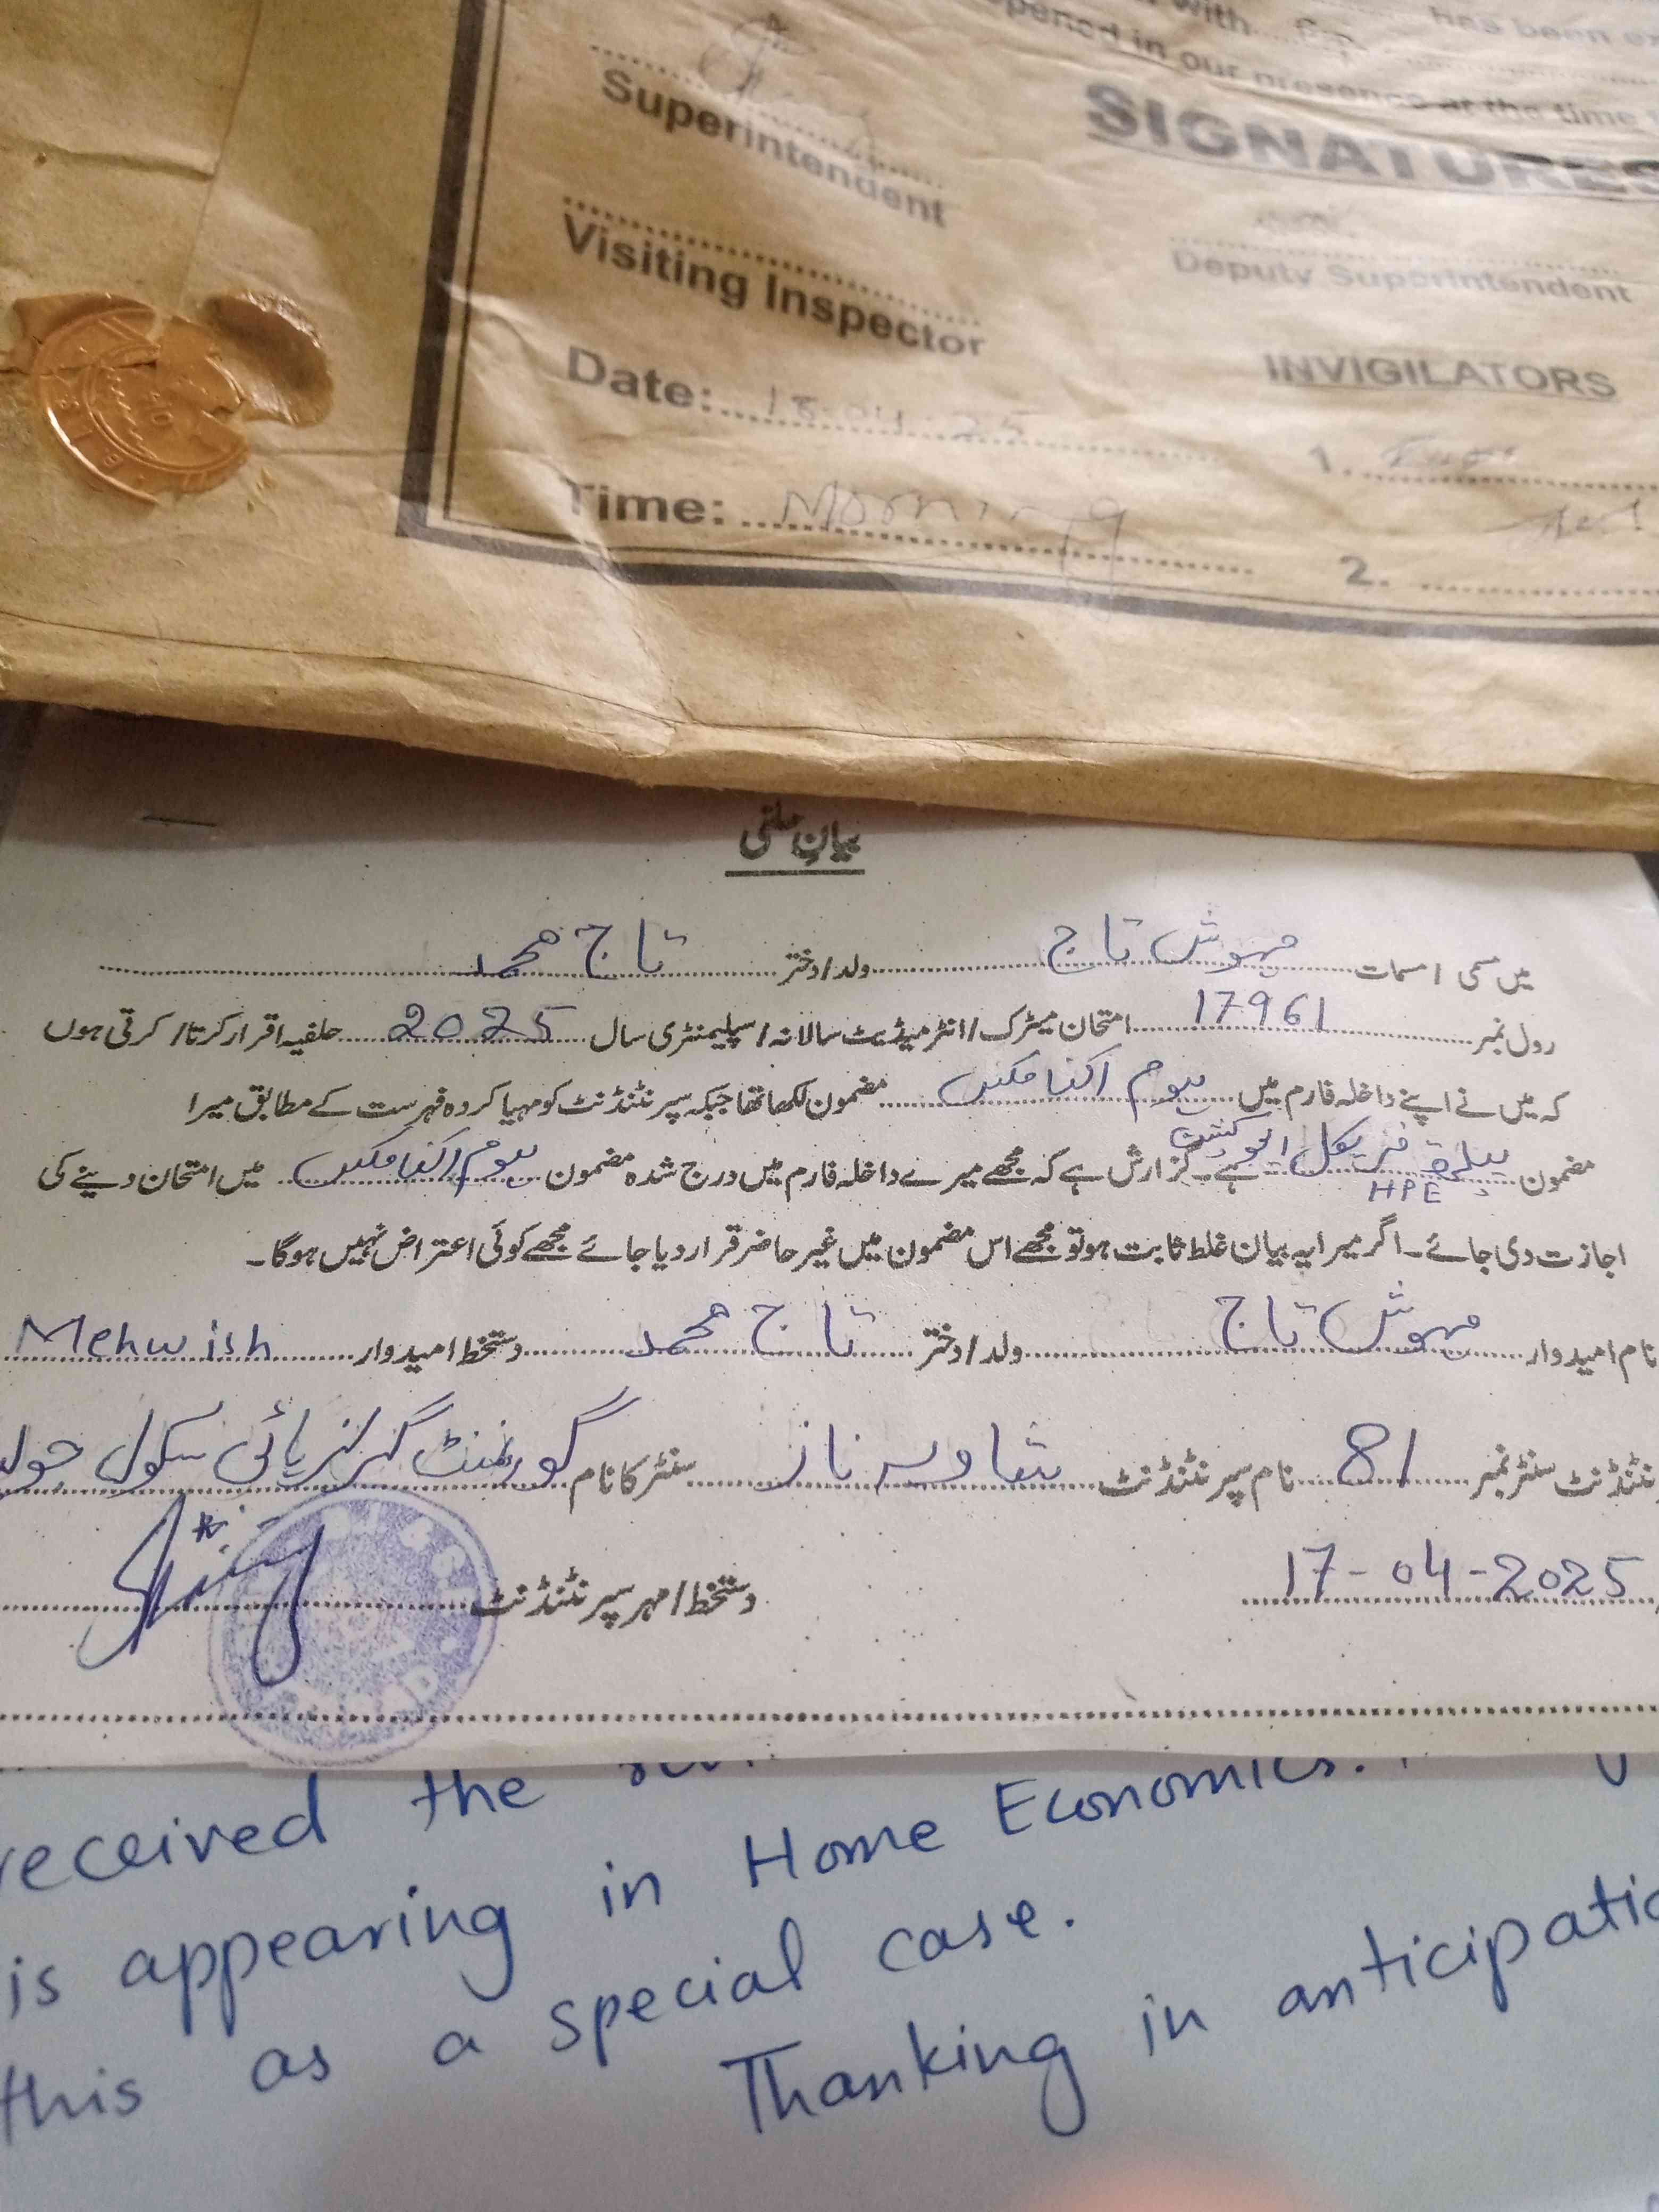 with
has been
opened in our presence at the time
SIGNATURES
Superintendent
Deputy Superintendent
Visiting Inspector
INVIGILATORS
Date: 18-04-25
1.
Time: Morning
2.
بیان حلفی
میں مسمی / مسمات مہوش تاج ولد/دختر تاج محمد
رول نمبر 17961 امتحان میٹرک/انٹرمیڈیٹ سالانہ/سپلیمنٹری سال 2025 حلفیہ اقرار کرتا/کرتی ہوں
کہ میں نے اپنے داخلہ فارم میں ہوم اکنامکس مضمون لکھا تھا جبکہ سپرنٹنڈنٹ کو مہیا کردہ فہرست کے مطابق میرا
مضمون ہیلتھ فزیکل ایجوکیشن HPE ہے۔ گزارش ہے کہ مجھے میرے داخلہ فارم میں درج شدہ مضمون ہوم اکنامکس میں امتحان دینے کی
اجازت دی جائے۔ اگر میرا یہ بیان غلط ثابت ہو تو مجھے اس مضمون میں غیر حاضر قرار دیا جائے مجھے کوئی اعتراض نہیں ہوگا۔
نام امیدوار مہوش تاج ولد/دختر تاج محمد دستخط امیدوار Mehwish
سنٹر نمبر 81 نام سپرنٹنڈنٹ ناز سنٹر کا نام گورنمنٹ گرلز ہائی سکول
17-04-2025 دستخط/مہر سپرنٹنڈنٹ
received the
is appearing in Home Economics.
this as a special case.
Thanking in